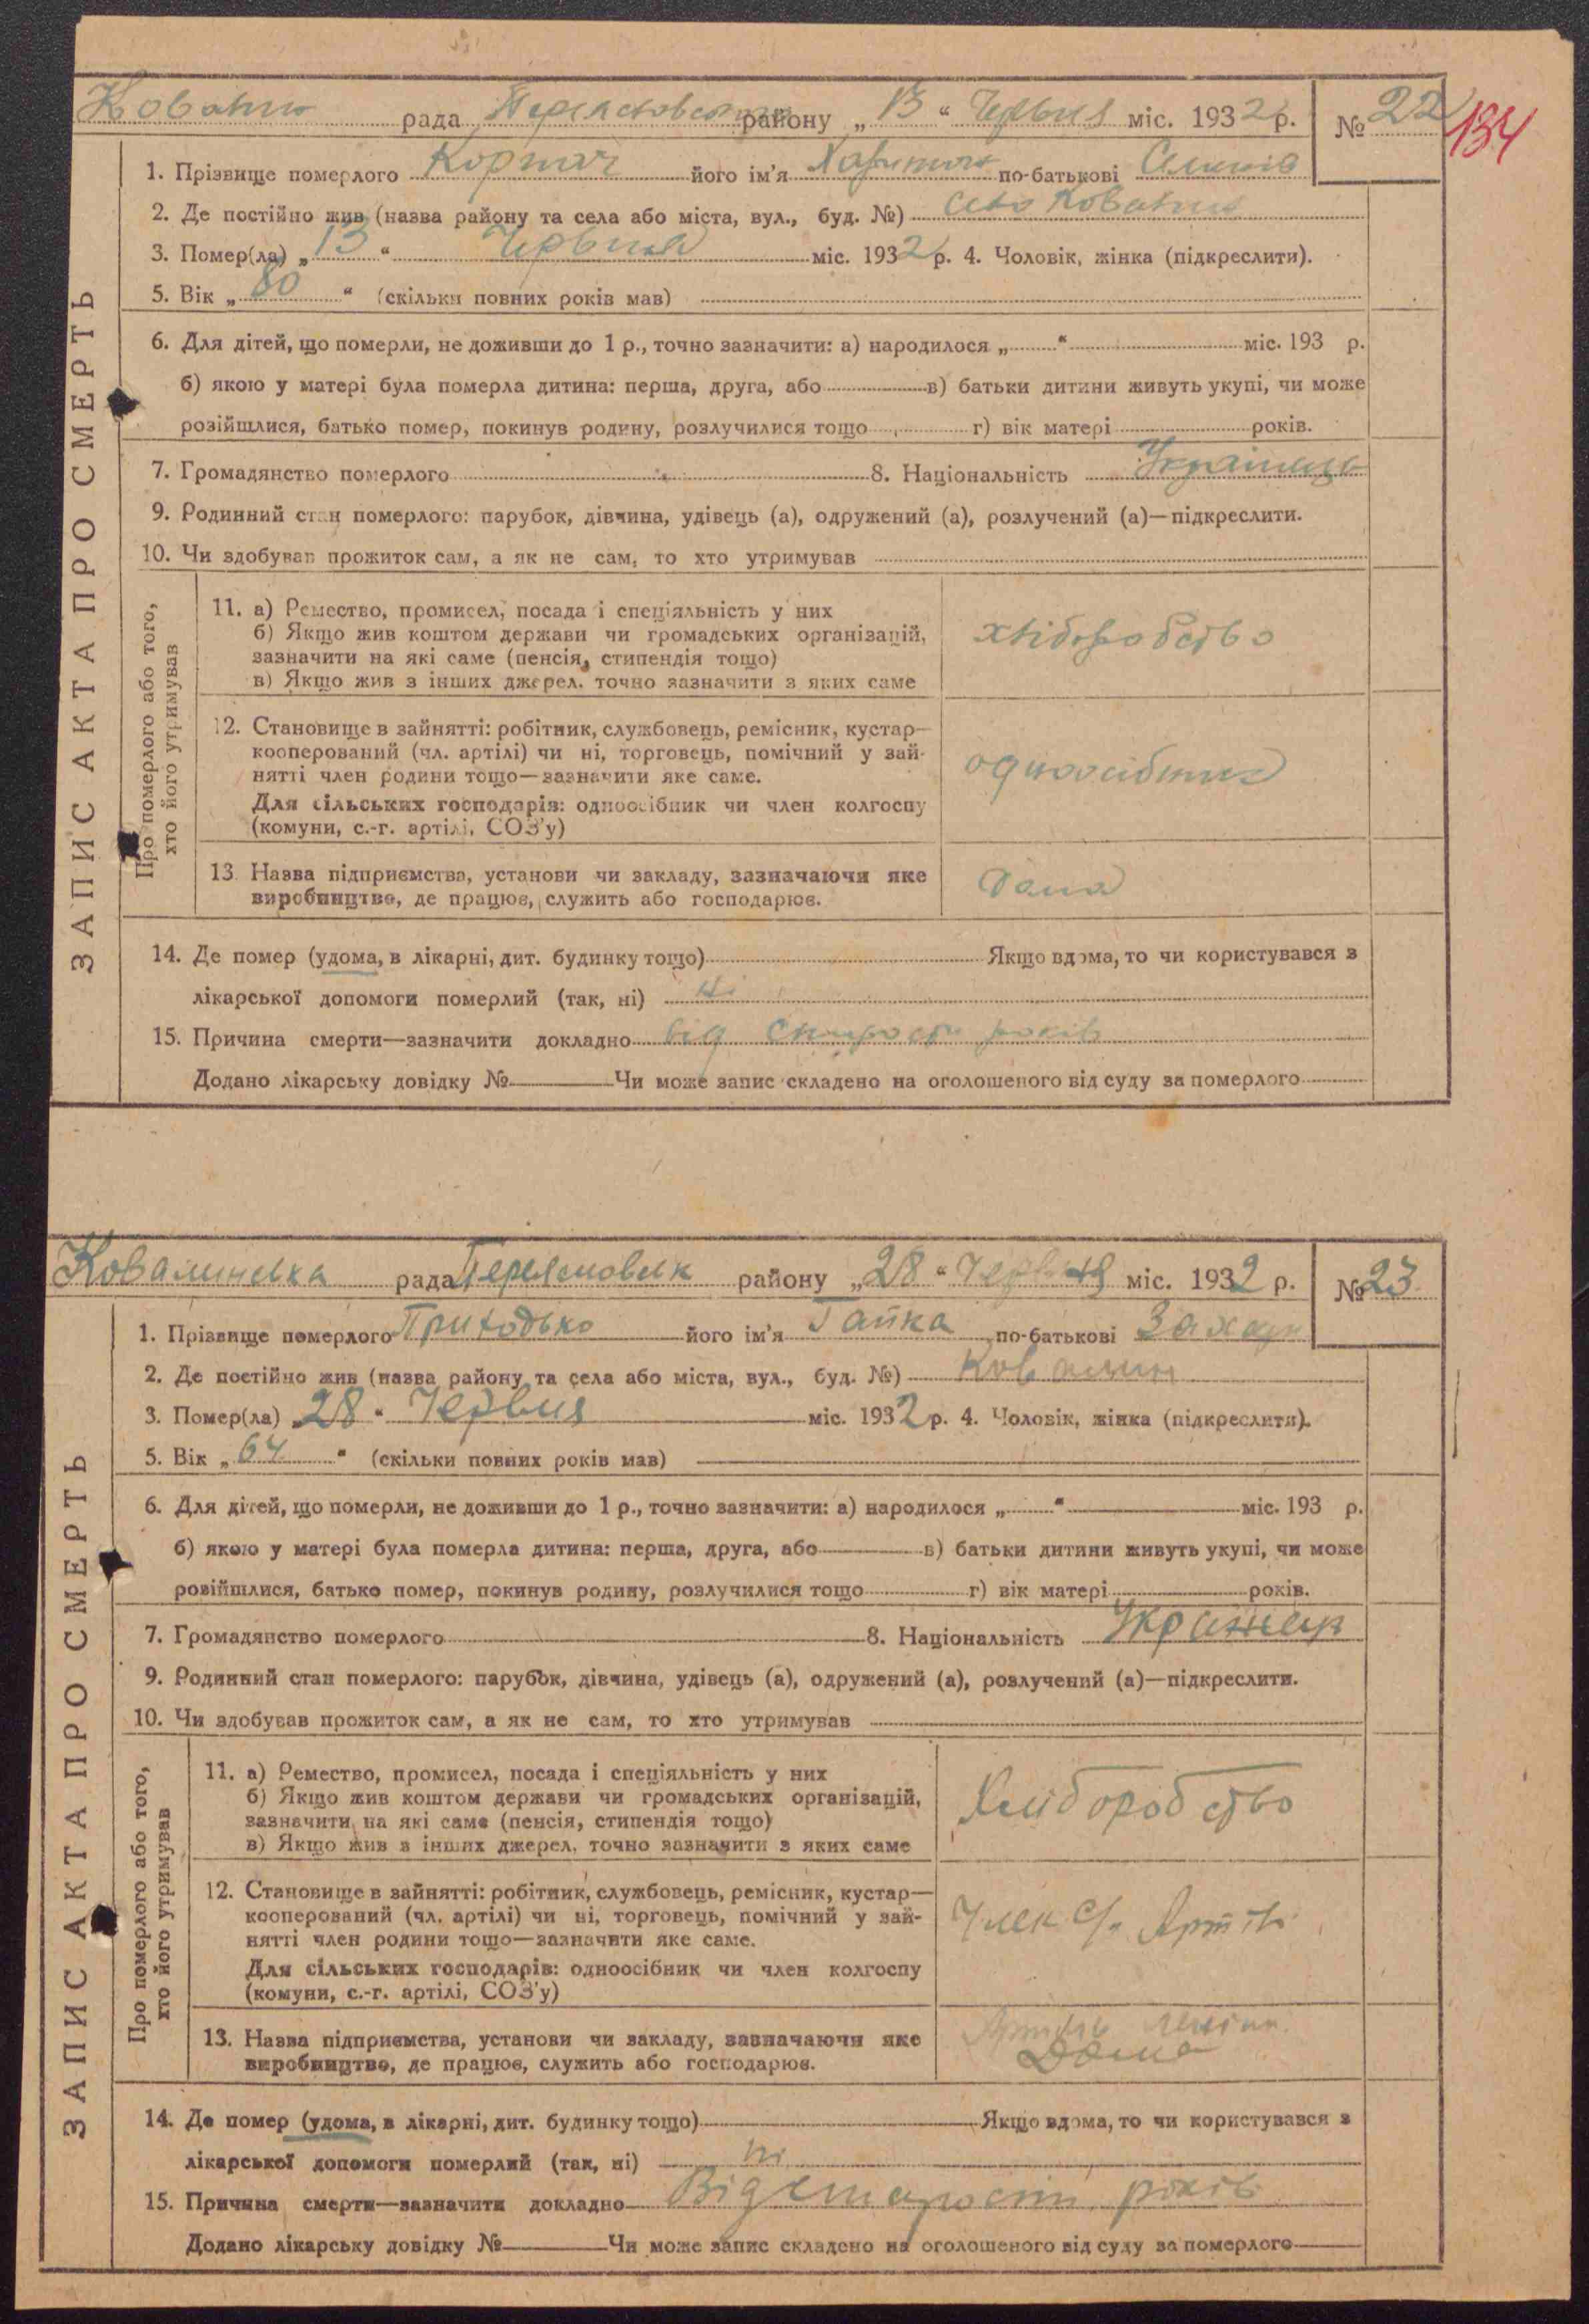 рада району „ 13 “ Червня міс. 1932 р. № 22
134
1. Прізвище померлого його ім'я Харитон по-батькові
2. Де постійно жив (назва району та села або міста, вул., буд. №) село Ковалин
3. Помер(ла) „ 13 “ Червня міс. 1932 р. 4. Чоловік, жінка (підкреслити).
5. Вік „ 80 “ (скільки повних років мав)
6. Для дітей, що померли, не доживши до 1 р., точно зазначити: а) народилося „ “ міс. 193 р.
б) якою у матері була померла дитина: перша, друга, або в) батьки дитини живуть укупі, чи може
розійшлися, батько помер, покинув родину, розлучилися тощо г) вік матері років.
7. Громадянство померлого 8. Національність Українець
9. Родинний стан померлого: парубок, дівчина, удівець (а), одружений (а), розлучений (а)—підкреслити.
10. Чи здобував прожиток сам, а як не сам, то хто утримував
ЗАПИС АКТА ПРО СМЕРТЬ
Про померлого або того,
хто його утримував
11. а) Ремество, промисел, посада і спеціяльність у них
б) Якщо жив коштом держави чи громадських організацій,
зазначити на які саме (пенсія, стипендія тощо)
в) Якщо жив з інших джерел, точно зазначити з яких саме
хліборобство
12. Становище в зайнятті: робітник, службовець, ремісник, кустар—
кооперований (чл. артілі) чи ні, торговець, помічний у зай-
нятті член родини тощо—зазначити яке саме.
Для сільських господарів: одноосібник чи член колгоспу
(комуни, с.-г. артілі, СОЗ'у)
одноосібник
13 Назва підприємства, установи чи закладу, зазначаючи яке
виробництво, де працює, служить або господарює.
Дома
14. Де помер (удома, в лікарні, дит. будинку тощо) Якщо вдома, то чи користувався з
лікарської допомоги померлий (так, ні) ні
15. Причина смерти—зазначити докладно від старости років
Додано лікарську довідку № Чи може запис складено на оголошеного від суду за померлого
Ковалинська рада Переясловськ району „ 28 “ Червня міс. 1932 р. № 23
1. Прізвище померлого Приходько його ім'я Гапка по-батькові Захар
2. Де постійно жив (назва району та села або міста, вул., буд. №) Ковалин
3. Помер(ла) „ 28 “ Червня міс. 1932 р. 4. Чоловік, жінка (підкреслити).
5. Вік „ 64 “ (скільки повних років мав)
6. Для дітей, що померли, не доживши до 1 р., точно зазначити: а) народилося „ “ міс. 193 р.
б) якою у матері була померла дитина: перша, друга, або в) батьки дитини живуть укупі, чи може
розійшлися, батько помер, покинув родину, розлучилися тощо г) вік матері років.
7. Громадянство померлого 8. Національність
9. Родинний стан померлого: парубок, дівчина, удівець (а), одружений (а), розлучений (а)—підкреслити.
10. Чи здобував прожиток сам, а як не сам, то хто утримував
ЗАПИС АКТА ПРО СМЕРТЬ
Про померлого або того,
хто його утримував
11. а) Ремество, промисел, посада і спеціяльність у них
б) Якщо жив коштом держави чи громадських організацій,
зазначити на які саме (пенсія, стипендія тощо)
в) Якщо жив з інших джерел, точно зазначити з яких саме
Хліборобство
12. Становище в зайнятті: робітник, службовець, ремісник, кустар—
кооперований (чл. артілі) чи ні, торговець, помічний у зай-
нятті член родини тощо—зазначити яке саме.
Для сільських господарів: одноосібник чи член колгоспу
(комуни, с.-г. артілі, СОЗ'у)
Член Артілі
13. Назва підприємства, установи чи закладу, зазначаючи яке
виробництво, де працює, служить або господарює.
Дома
14. Де помер (удома, в лікарні, дит. будинку тощо) Якщо вдома, то чи користувався з
лікарської допомоги померлий (так, ні) ні
15. Причина смерти—зазначити докладно Від старости років
Додано лікарську довідку № Чи може запис складено на оголошеного від суду за померлого